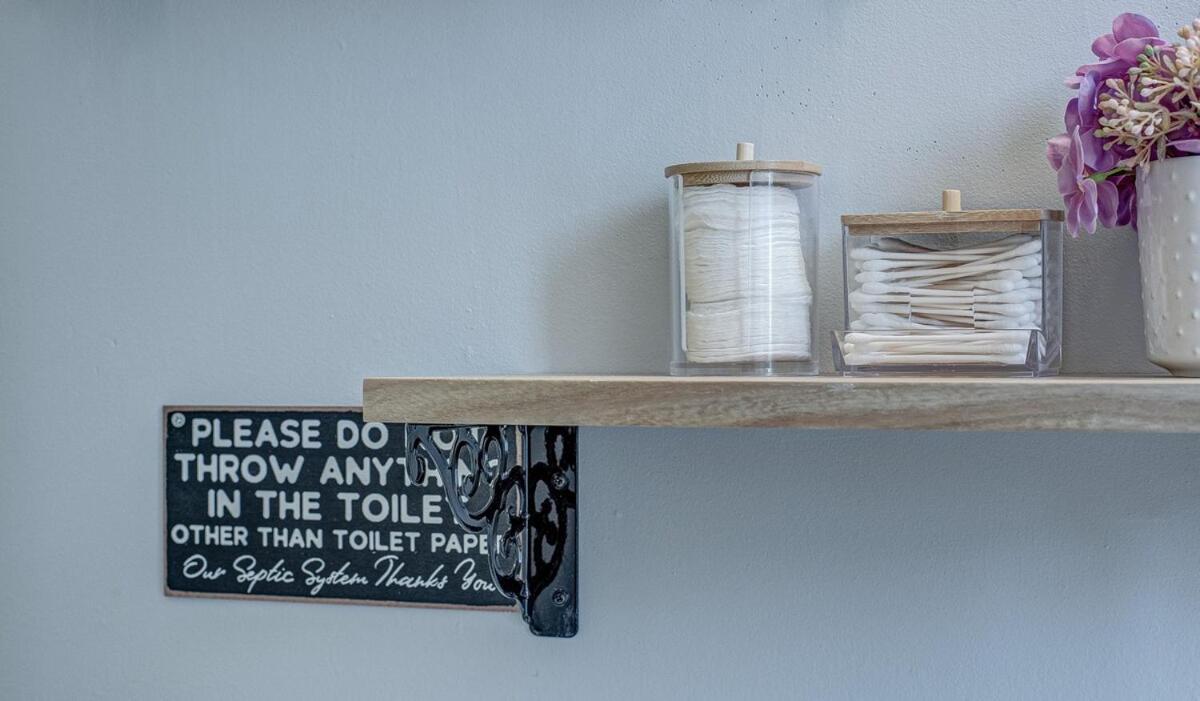 PLEASE DO
THROW ANYTHING
IN THE TOILET
OTHER THAN TOILET PAPER
Our Septic System Thanks You